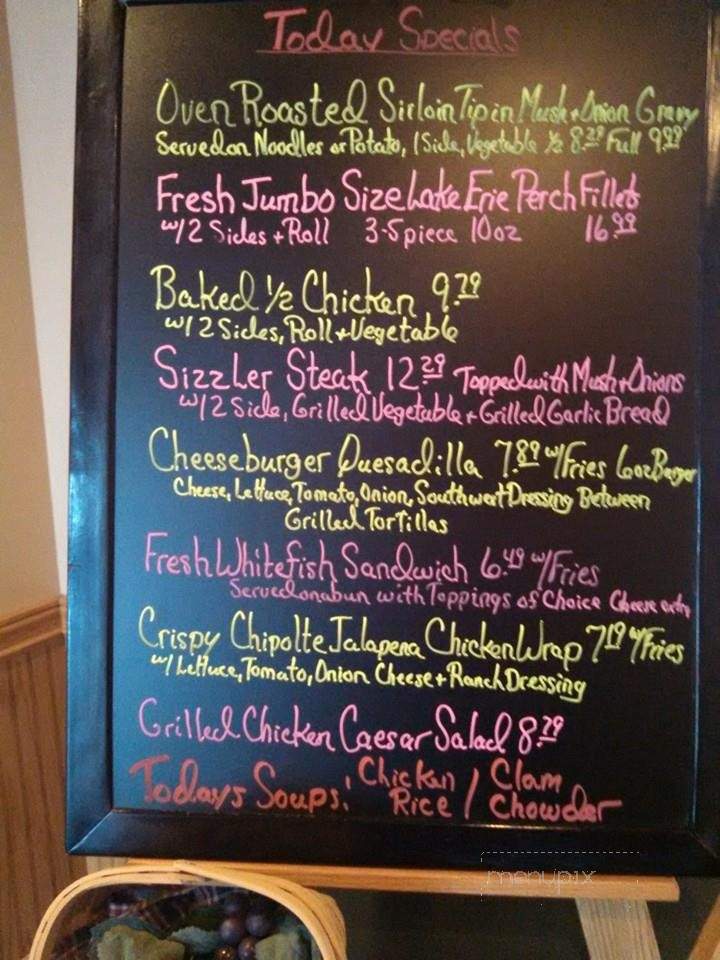 Today Specials
Oven Roasted Sirloin Tip in Mush + Onion Gravy
Served on Noodles or Potato, 1 Side, Vegetable ½ 8.29 Full 9.99
Fresh Jumbo Size Lake Erie Perch Fillets
w/2 Sides + Roll 3-5 piece 10oz 16.99
Baked ½ Chicken 9.79
w/ 2 Sides, Roll + Vegetable
Sizzler Steak 12.29 Topped with Mush + Onions
w/2 Side, Grilled Vegetable + Grilled Garlic Bread
Cheeseburger Quesadilla 7.89 w/Fries 6oz Burger
Cheese, Lettuce, Tomato, Onion, Southwest Dressing Between
Grilled Tortillas
Fresh Whitefish Sandwich 6.49 w/Fries
Served on a bun with Toppings of Choice Cheese extra
Crispy Chipolte Jalapena Chicken Wrap 7.19 w/Fries
w/ Lettuce, Tomato, Onion Cheese + Ranch Dressing
Grilled Chicken Caesar Salad 8.79
Todays Soups: Chicken Rice / Clam Chowder
menupix